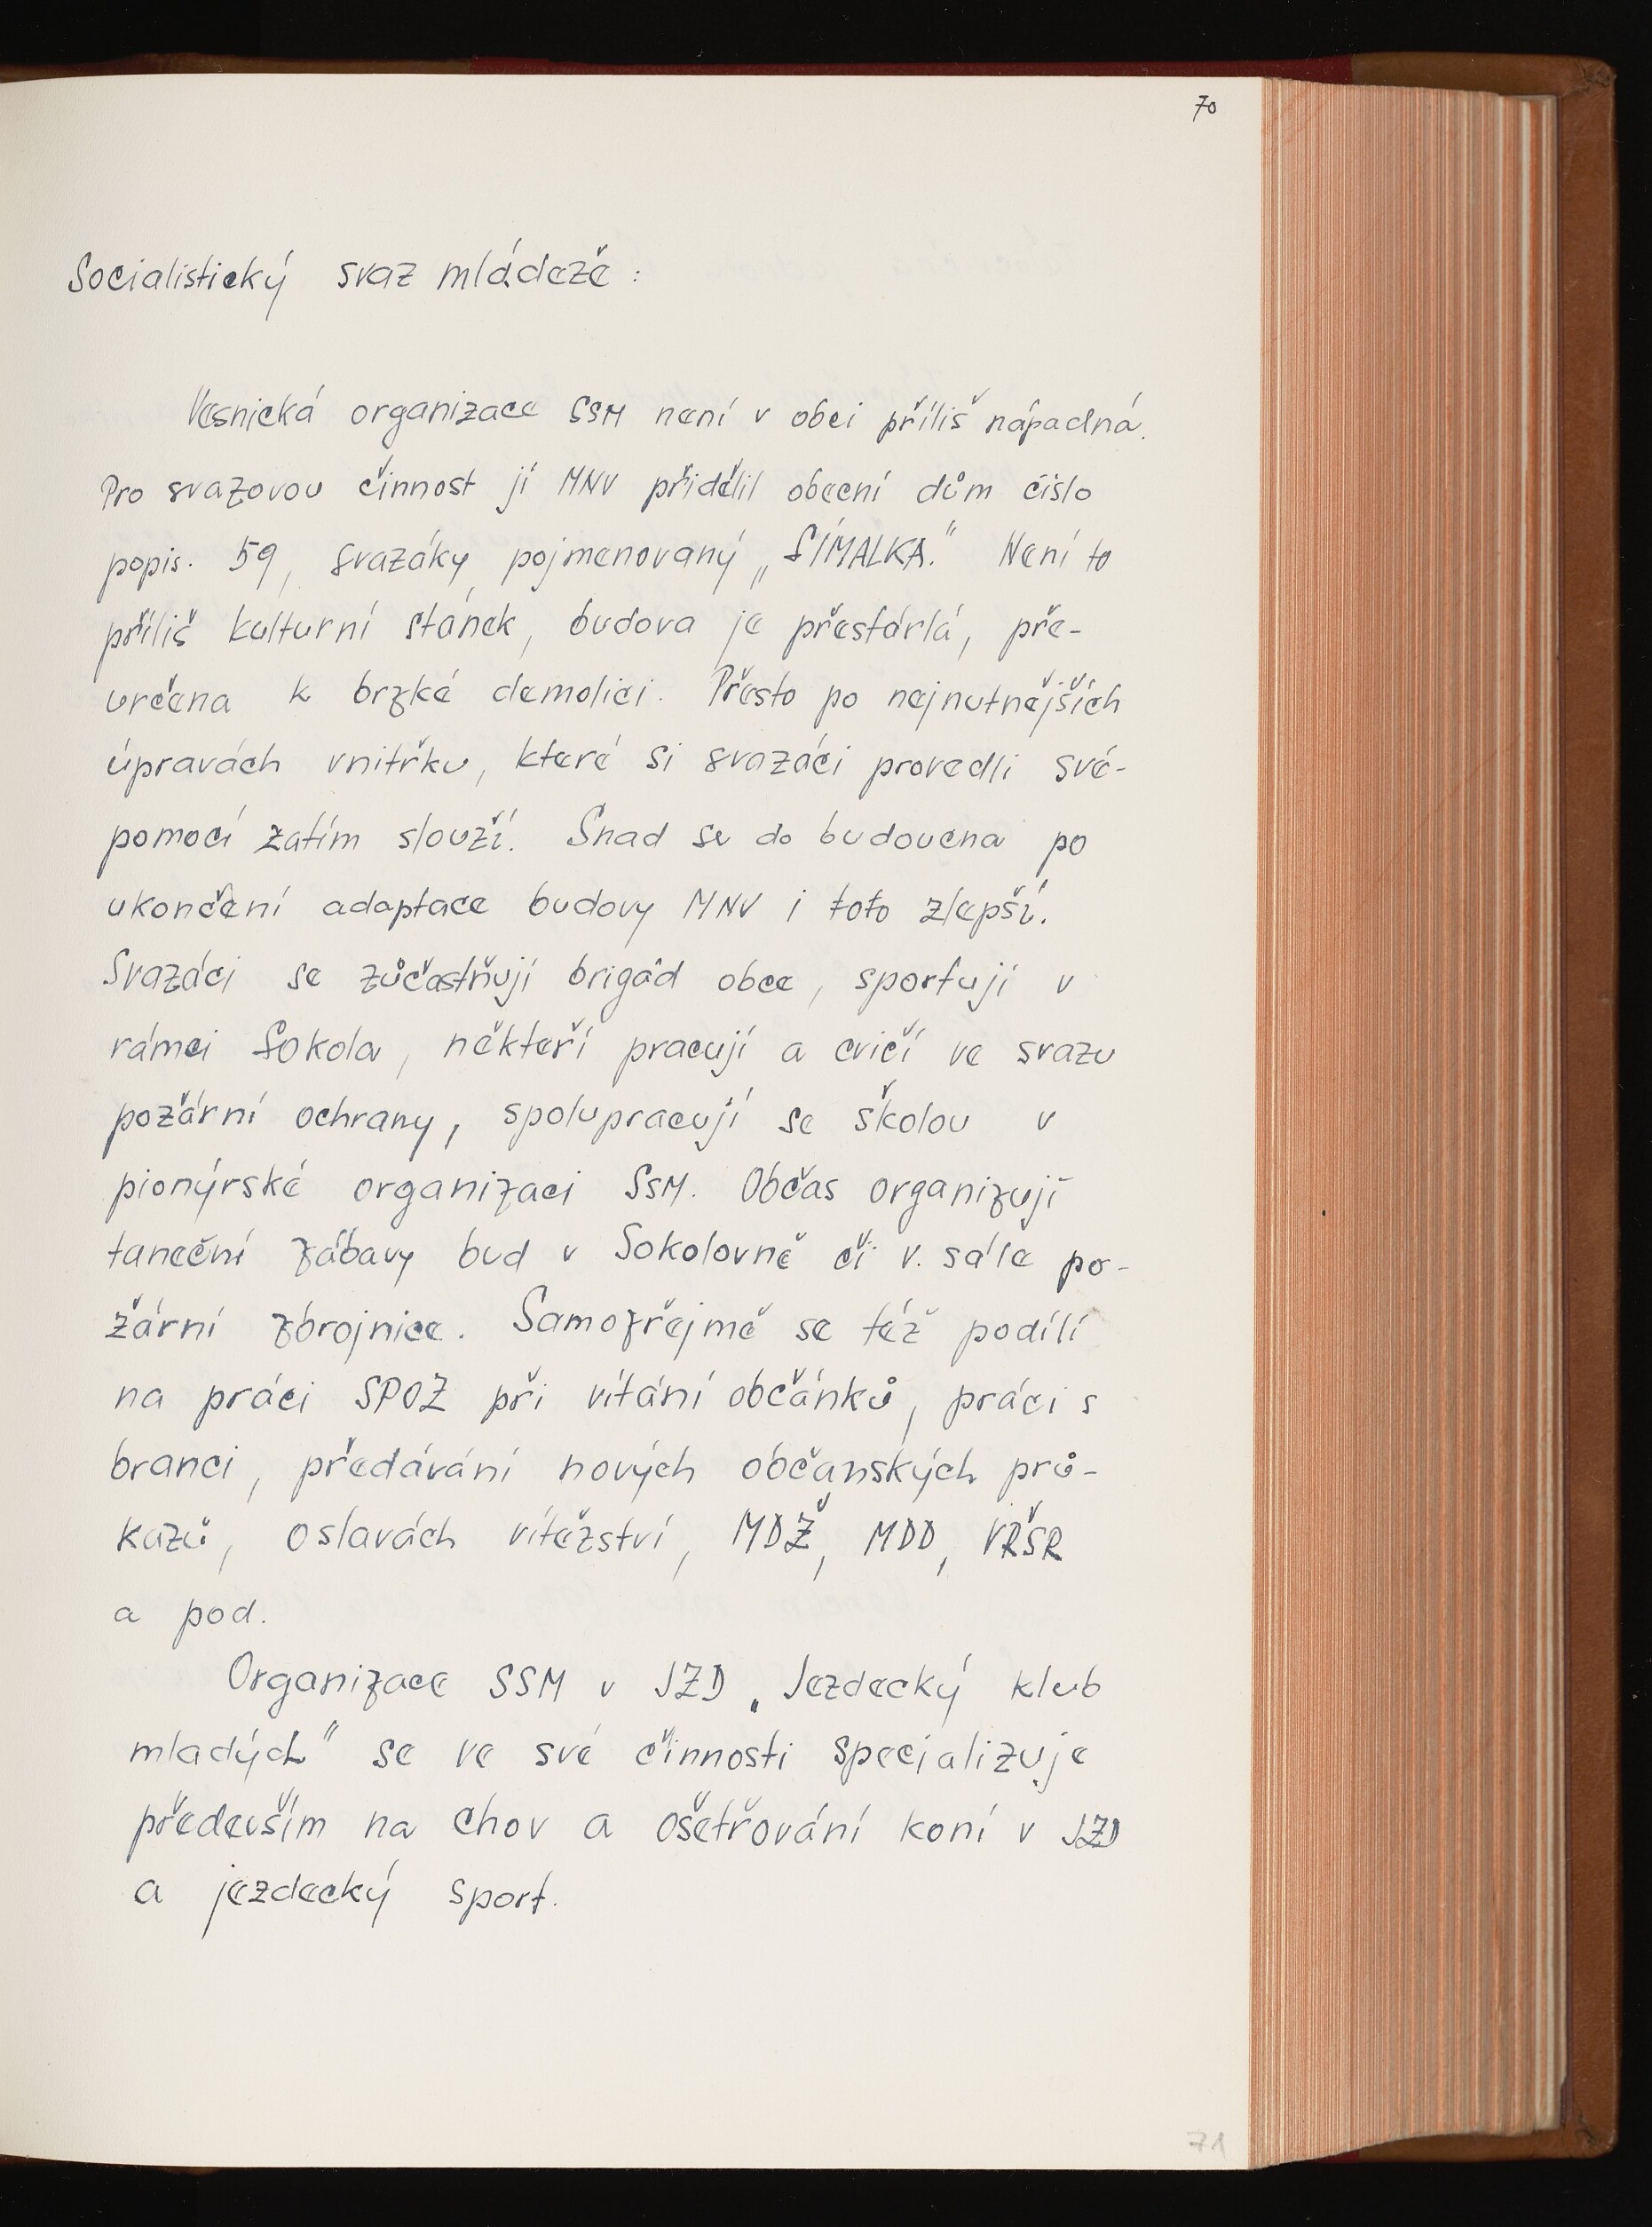 70
Socialistický svaz mládeže:
Vesnická organizace SSM není v obci příliš nápadná.
Pro svazovou činnost jí MNV přidělil obecní dům číslo
popis. 59, svazáky pojmenovaný „SÍMALKA." Není to
příliš kulturní stánek, budova je přestárlá, pře-
určena k brzké demolici. Přesto po nejnutnějších
úpravách vnitřku, které si svazáci provedli své-
pomocí zatím slouží. Snad se do budoucna po
ukončení adaptace budovy MNV i toto zlepší.
Svazáci se zůčastňují brigád obce, sportují v
rámci Sokola, někteří pracují a cvičí ve svazu
požární ochrany, spolupracují se školou v
pionýrské organizaci SSM. Občas organizují
taneční zábavy bud v Sokolovně či v. sále po-
žární zbrojnice. Samozřejmě se též podílí
na práci SPOZ při vítání občánků, práci s
branci, předávání nových občanských prů-
kazů, oslavách vítězství, MDŽ, MDD, VŘSR
a pod.
Organizace SSM v JZD „Jezdecký klub
mladých" se ve své činnosti specializuje
především na chov a ošetřování koní v JZD
a jezdecký sport.
71